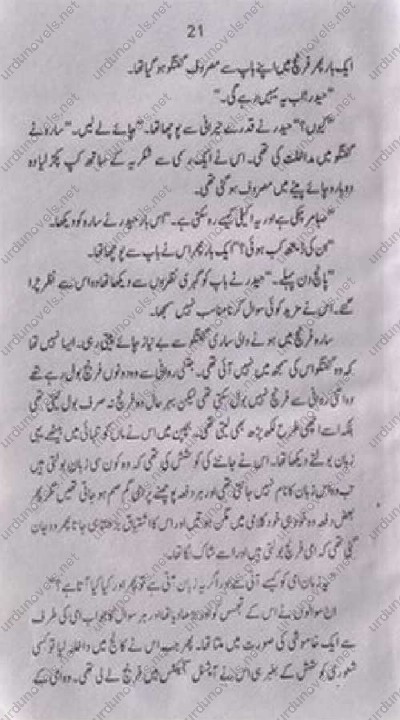 21
ایک بار پھر فرنچ میں اپنے باپ سے مصروف گفتگو ہو گیا تھا۔
"حیدر! اب یہ یہیں رہے گی۔"
"کیوں؟" حیدر نے قدرے حیرانی سے پوچھا تھا۔ "چائے لے لیں۔" سارہ نے
گفتگو میں مداخلت کی تھی۔ اس نے ایک رسمی سے شکریہ کے ساتھ کپ پکڑ لیا وہ
دوبارہ چائے پینے میں مصروف ہو گئی تھی۔
"صبا مر چکی ہے اور یہ اکیلی کیسے رہ سکتی ہے۔" اس بار حیدر نے سارہ کو دیکھا۔
"ان کی ڈیتھ کب ہوئی؟" ایک بار پھر اس نے باپ سے پوچھا تھا۔
"پانچ دن پہلے۔" حیدر نے باپ کو گہری نظروں سے دیکھا تھا وہ اس سے نظر چرا
گئے۔ اس نے مزید کوئی سوال کرنا مناسب نہیں سمجھا۔
سارہ فرنچ میں ہونے والی ساری گفتگو سے بے نیاز چائے پیتی رہی۔ ایسا نہیں تھا
کہ وہ گفتگو اس کی سمجھ میں نہیں آئی تھی۔ جتنی روانی سے وہ دونوں فرنچ بول رہے تھے
وہ اتنی روانی سے فرنچ نہیں بول سکتی تھی لیکن بہر حال وہ فرنچ نہ صرف بول لیتی تھی
بلکہ اسے اچھی طرح لکھ پڑھ بھی لیتی تھی۔ بچپن میں اس نے ماں کو تنہائی میں بیٹھے یہی
زبان بولتے دیکھا تھا۔ اس نے جاننے کی کوشش کی تھی کہ وہ کون سی زبان بولتی ہیں
تب وہ اس زبان کا نام نہیں جانتی تھی اور ہر دفعہ پوچھنے پر امی گم صم ہو جاتی تھیں مگر پھر
بعض دفعہ وہ خود ہی خود کلامی میں مگن ہوتیں اور اس کا اشتیاق بڑھتا ہی جاتا پھر وہ جان
گئی تھی کہ امی فرنچ بولتی ہیں اور اسے شاک لگا تھا۔
یہ زبان امی کو کیسے آتی ہے اور اگر یہ زبان آتی ہے تو پھر اور کیا کیا آتا ہے؟
ان سوالوں نے اس کے تجسس کو اور بڑھا دیا تھا اور ہر سوال کا جواب امی کی طرف
سے ایک خاموشی کی صورت میں ملتا تھا۔ پھر جب اس نے کالج میں داخلہ لیا تو کسی
شعوری کوشش کے بغیر ہی اس نے آپشنل سبجیکٹس میں فرنچ لے لی تھی۔ وہ امی کے